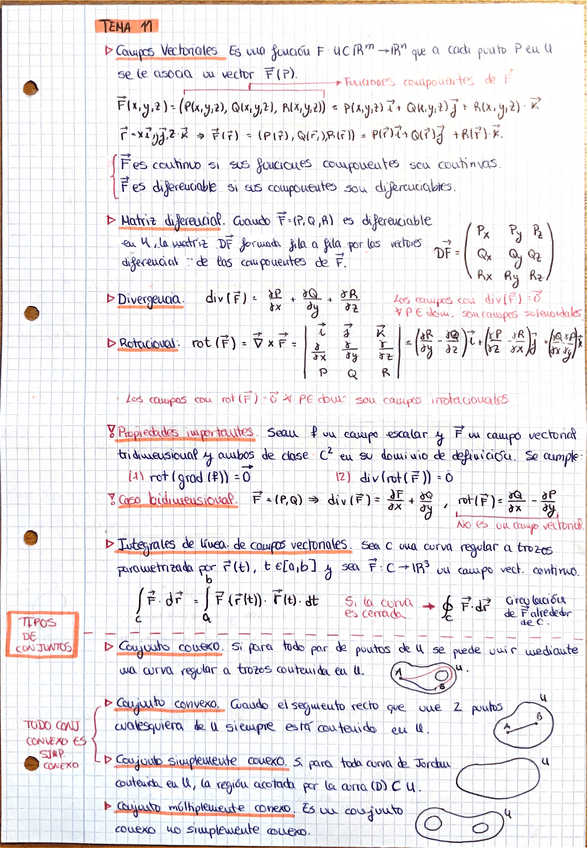 TEMA 11
▷ Campos Vectoriales. Es una función F: U⊂ℝᵐ→ℝⁿ que a cada punto P en U
se le asocia un vector F⃗(P).
→ Funciones componentes de F⃗
F⃗(x,y,z) = (P(x,y,z), Q(x,y,z), R(x,y,z)) = P(x,y,z) i⃗ + Q(x,y,z) j⃗ + R(x,y,z)·k⃗
r⃗ = x i⃗, y j⃗, z·k⃗ ⇒ F⃗(r⃗) = (P(r⃗), Q(r⃗), R(r⃗)) = P(r⃗) i⃗ + Q(r⃗) j⃗ + R(r⃗)·k⃗.
F⃗ es continuo si sus funciones componentes son continuas.
F⃗ es diferenciable si sus componentes son diferenciables.
▷ Matriz diferencial. Cuando F⃗=(P,Q,R) es diferenciable
en U, la matriz DF⃗ formada fila a fila por los vectores
diferencial de las componentes de F⃗.
DF⃗ = ( Px Py Pz
Qx Qy Qz
Rx Ry Rz )
▷ Divergencia. div(F⃗) = ∂P/∂x + ∂Q/∂y + ∂R/∂z
Los campos con div(F⃗) = 0⃗
∀ P∈ dom. son campos solenoidales
▷ Rotacional: rot(F⃗) = ∇⃗ × F⃗ = | i⃗ j⃗ k⃗
∂/∂x ∂/∂y ∂/∂z
P Q R | = (∂R/∂y - ∂Q/∂z) i⃗ + (∂P/∂z - ∂R/∂x) j⃗ + (∂Q/∂x - ∂P/∂y) k⃗
· Los campos con rot(F⃗) = 0⃗ ∀ P∈ dom: son campos irrotacionales
! Propiedades importantes. Sean f un campo escalar y F⃗ un campo vectorial
tridimensional y ambos de clase C² en su dominio de definición. Se cumple:
(1) rot(grad(f)) = 0⃗ (2) div(rot(F⃗)) = 0
! Caso bidimensional. F⃗ = (P,Q) ⇒ div(F⃗) = ∂F/∂x + ∂Q/∂y , rot(F⃗) = ∂Q/∂x - ∂P/∂y
No es un campo vectorial
▷ Integrales de línea de campos vectoriales. Sea C una curva regular a trozos
parametrizada por r⃗(t), t∈[a,b] y sea F⃗: C→ℝ³ un campo vect. continuo.
∫_C F⃗·dr⃗ = ∫_a^b F⃗(r⃗(t))·r⃗(t)·dt
Si la curva
es cerrada → ∮_C F⃗·dr⃗
circulación
de F⃗ alrededor
de C.
TIPOS
DE
CONJUNTOS
▷ Conjunto conexo. Si para todo par de puntos de U se puede unir mediante
una curva regular a trozos contenida en U.
A B U.
▷ Conjunto convexo. Cuando el segmento recto que une 2 puntos
cualesquiera de U siempre está contenido en U.
A B U
TODO CONJ
CONVEXO ES
SIMP
CONEXO
▷ Conjunto simplemente conexo. Si para toda curva de Jordan
contenida en U, la región acotada por la curva (D) ⊂ U.
U
▷ Conjunto múltiplemente conexo. Es un conjunto
conexo no simplemente conexo.
U